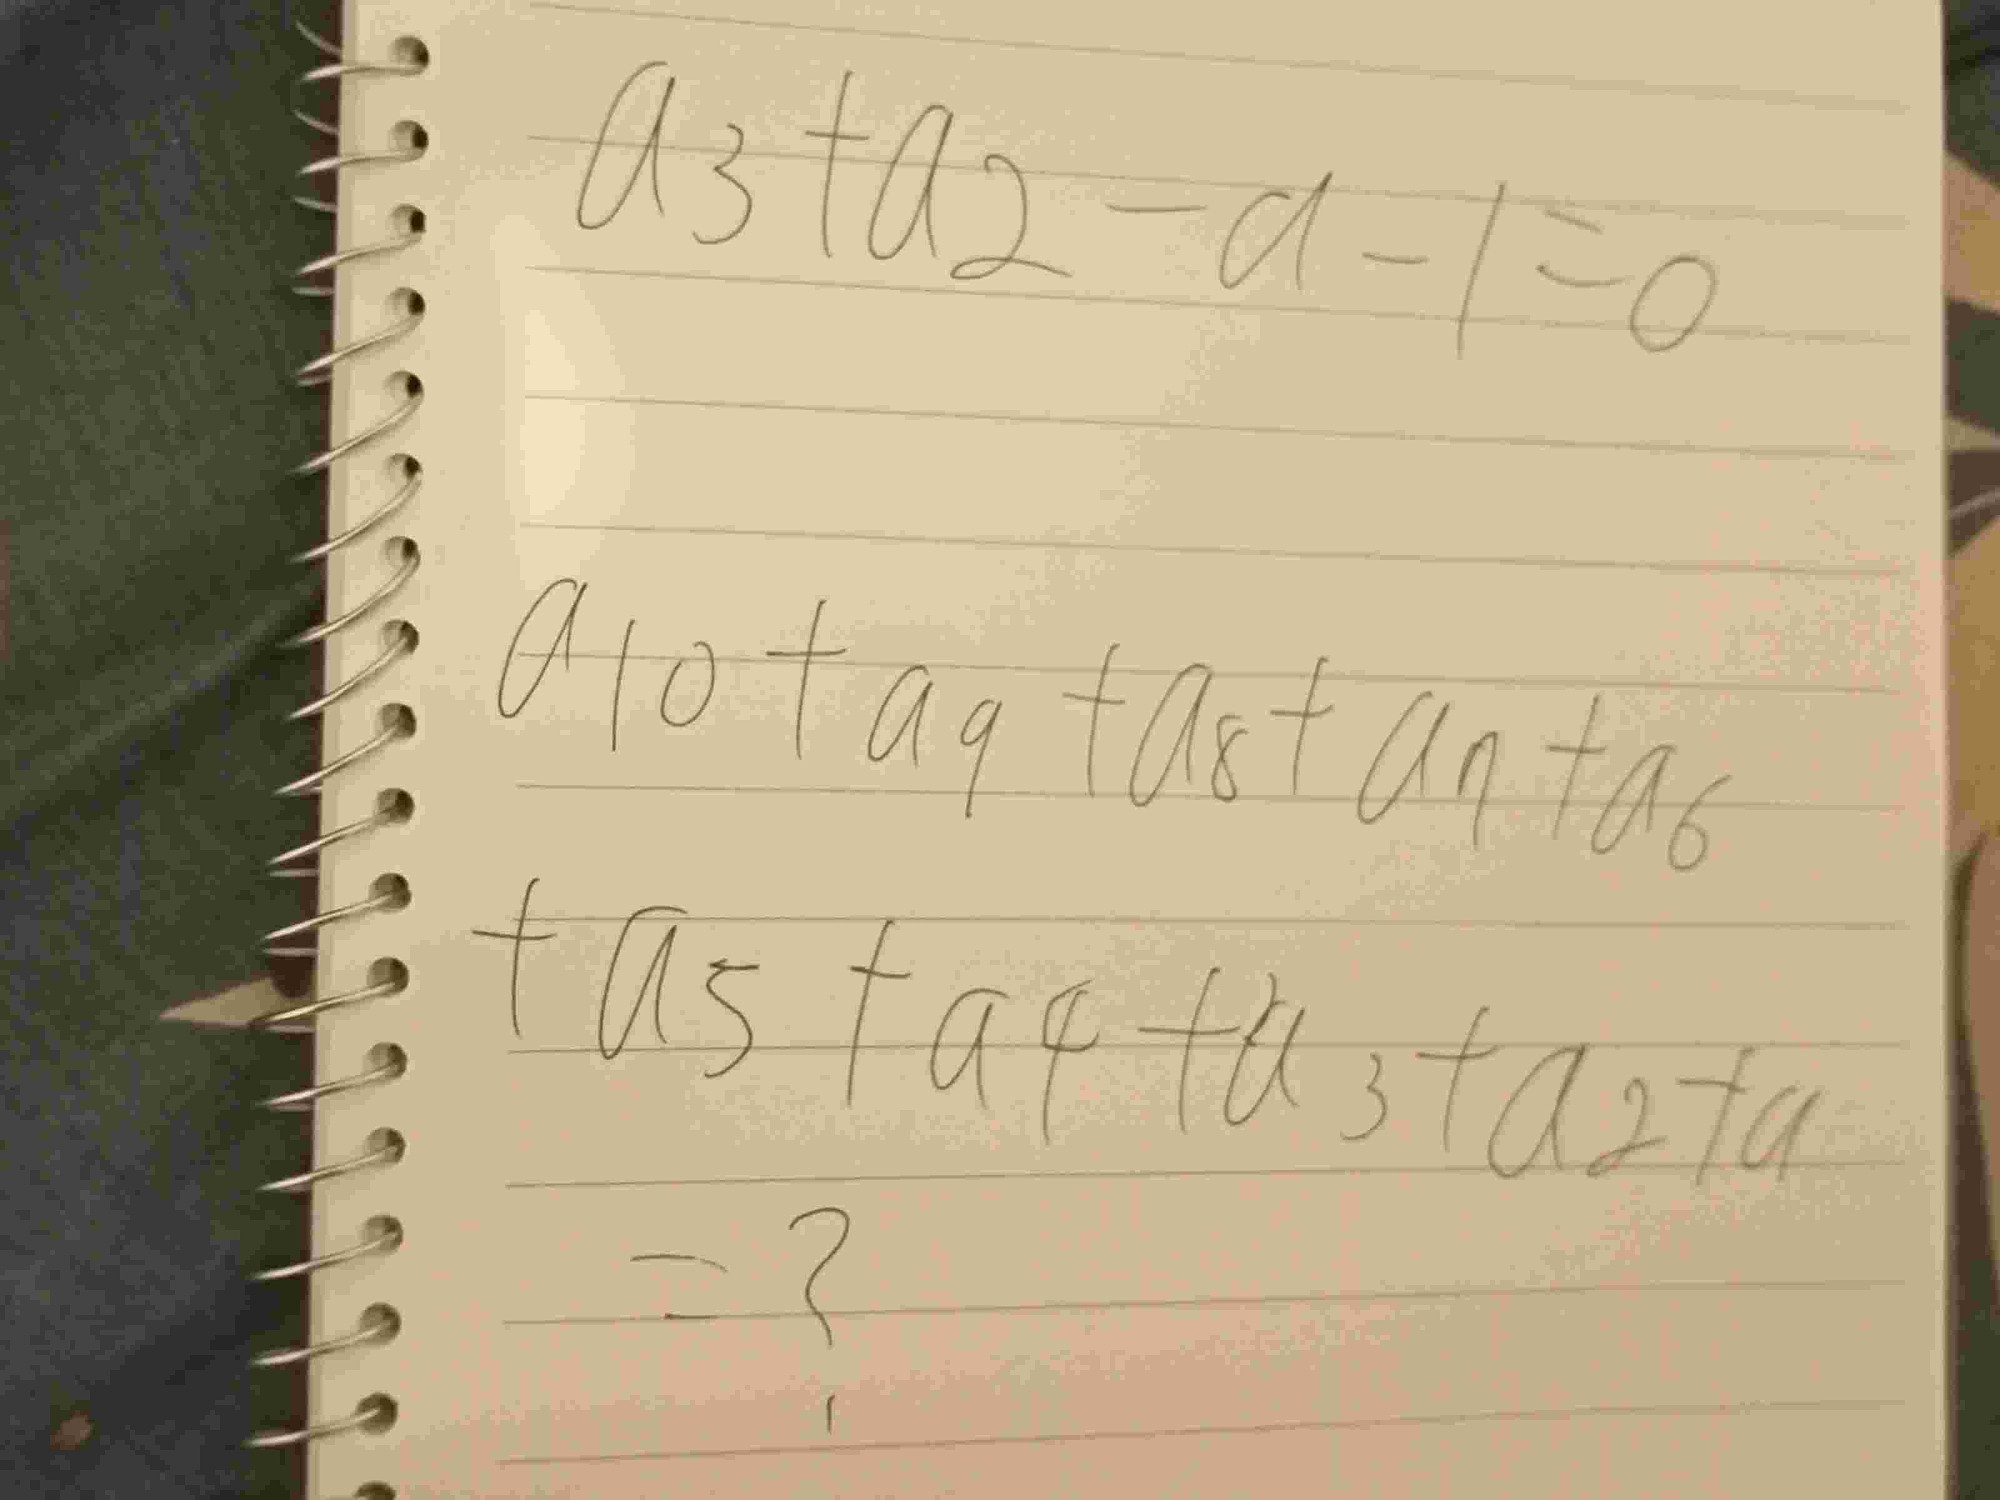 a3+a2-a-1=0
a10+a9+a8+a7+a6
+a5+a4+a3+a2+a
=?